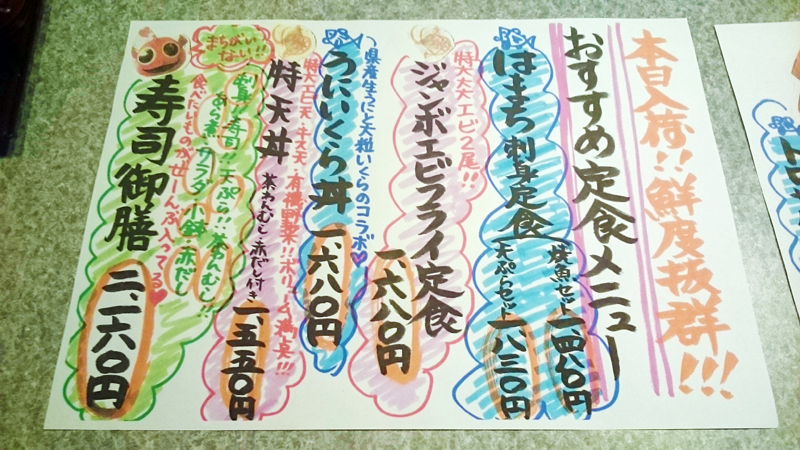 本日入荷!!鮮度抜群!!!
おすすめ定食メニュー
はまち刺身定食
焼魚セット 一、四八〇円
天ぷらセット 一、八三〇円
特大大エビ2尾!!
ジャンボエビフライ定食
一、六八〇円
県産生うにと大粒いくらのコラボ♥
うにいくら丼 一、六八〇円
特大エビ天・キス天・有機野菜!!ボリューム満点!!!
特天丼
茶わんむし・赤だし付き 一、五五〇円
まちがいない!!
刺身!寿司!!天ぷら!!!茶わんむし!!!
あら煮・サラダ・小鉢・赤だし
食べたいものがぜーんぶ入ってる♥
寿司御膳 二、一六〇円